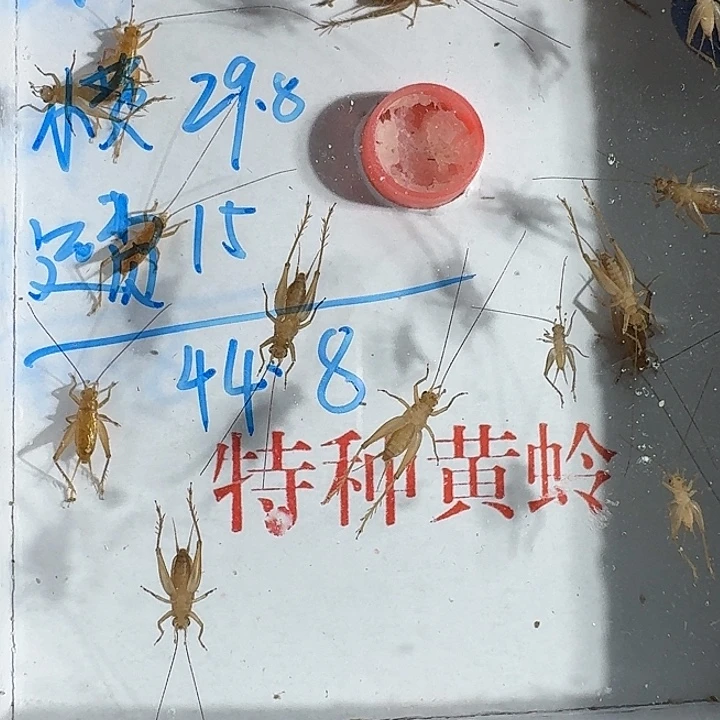 水费 29.8
运费 15
44.8
特种黄蛉